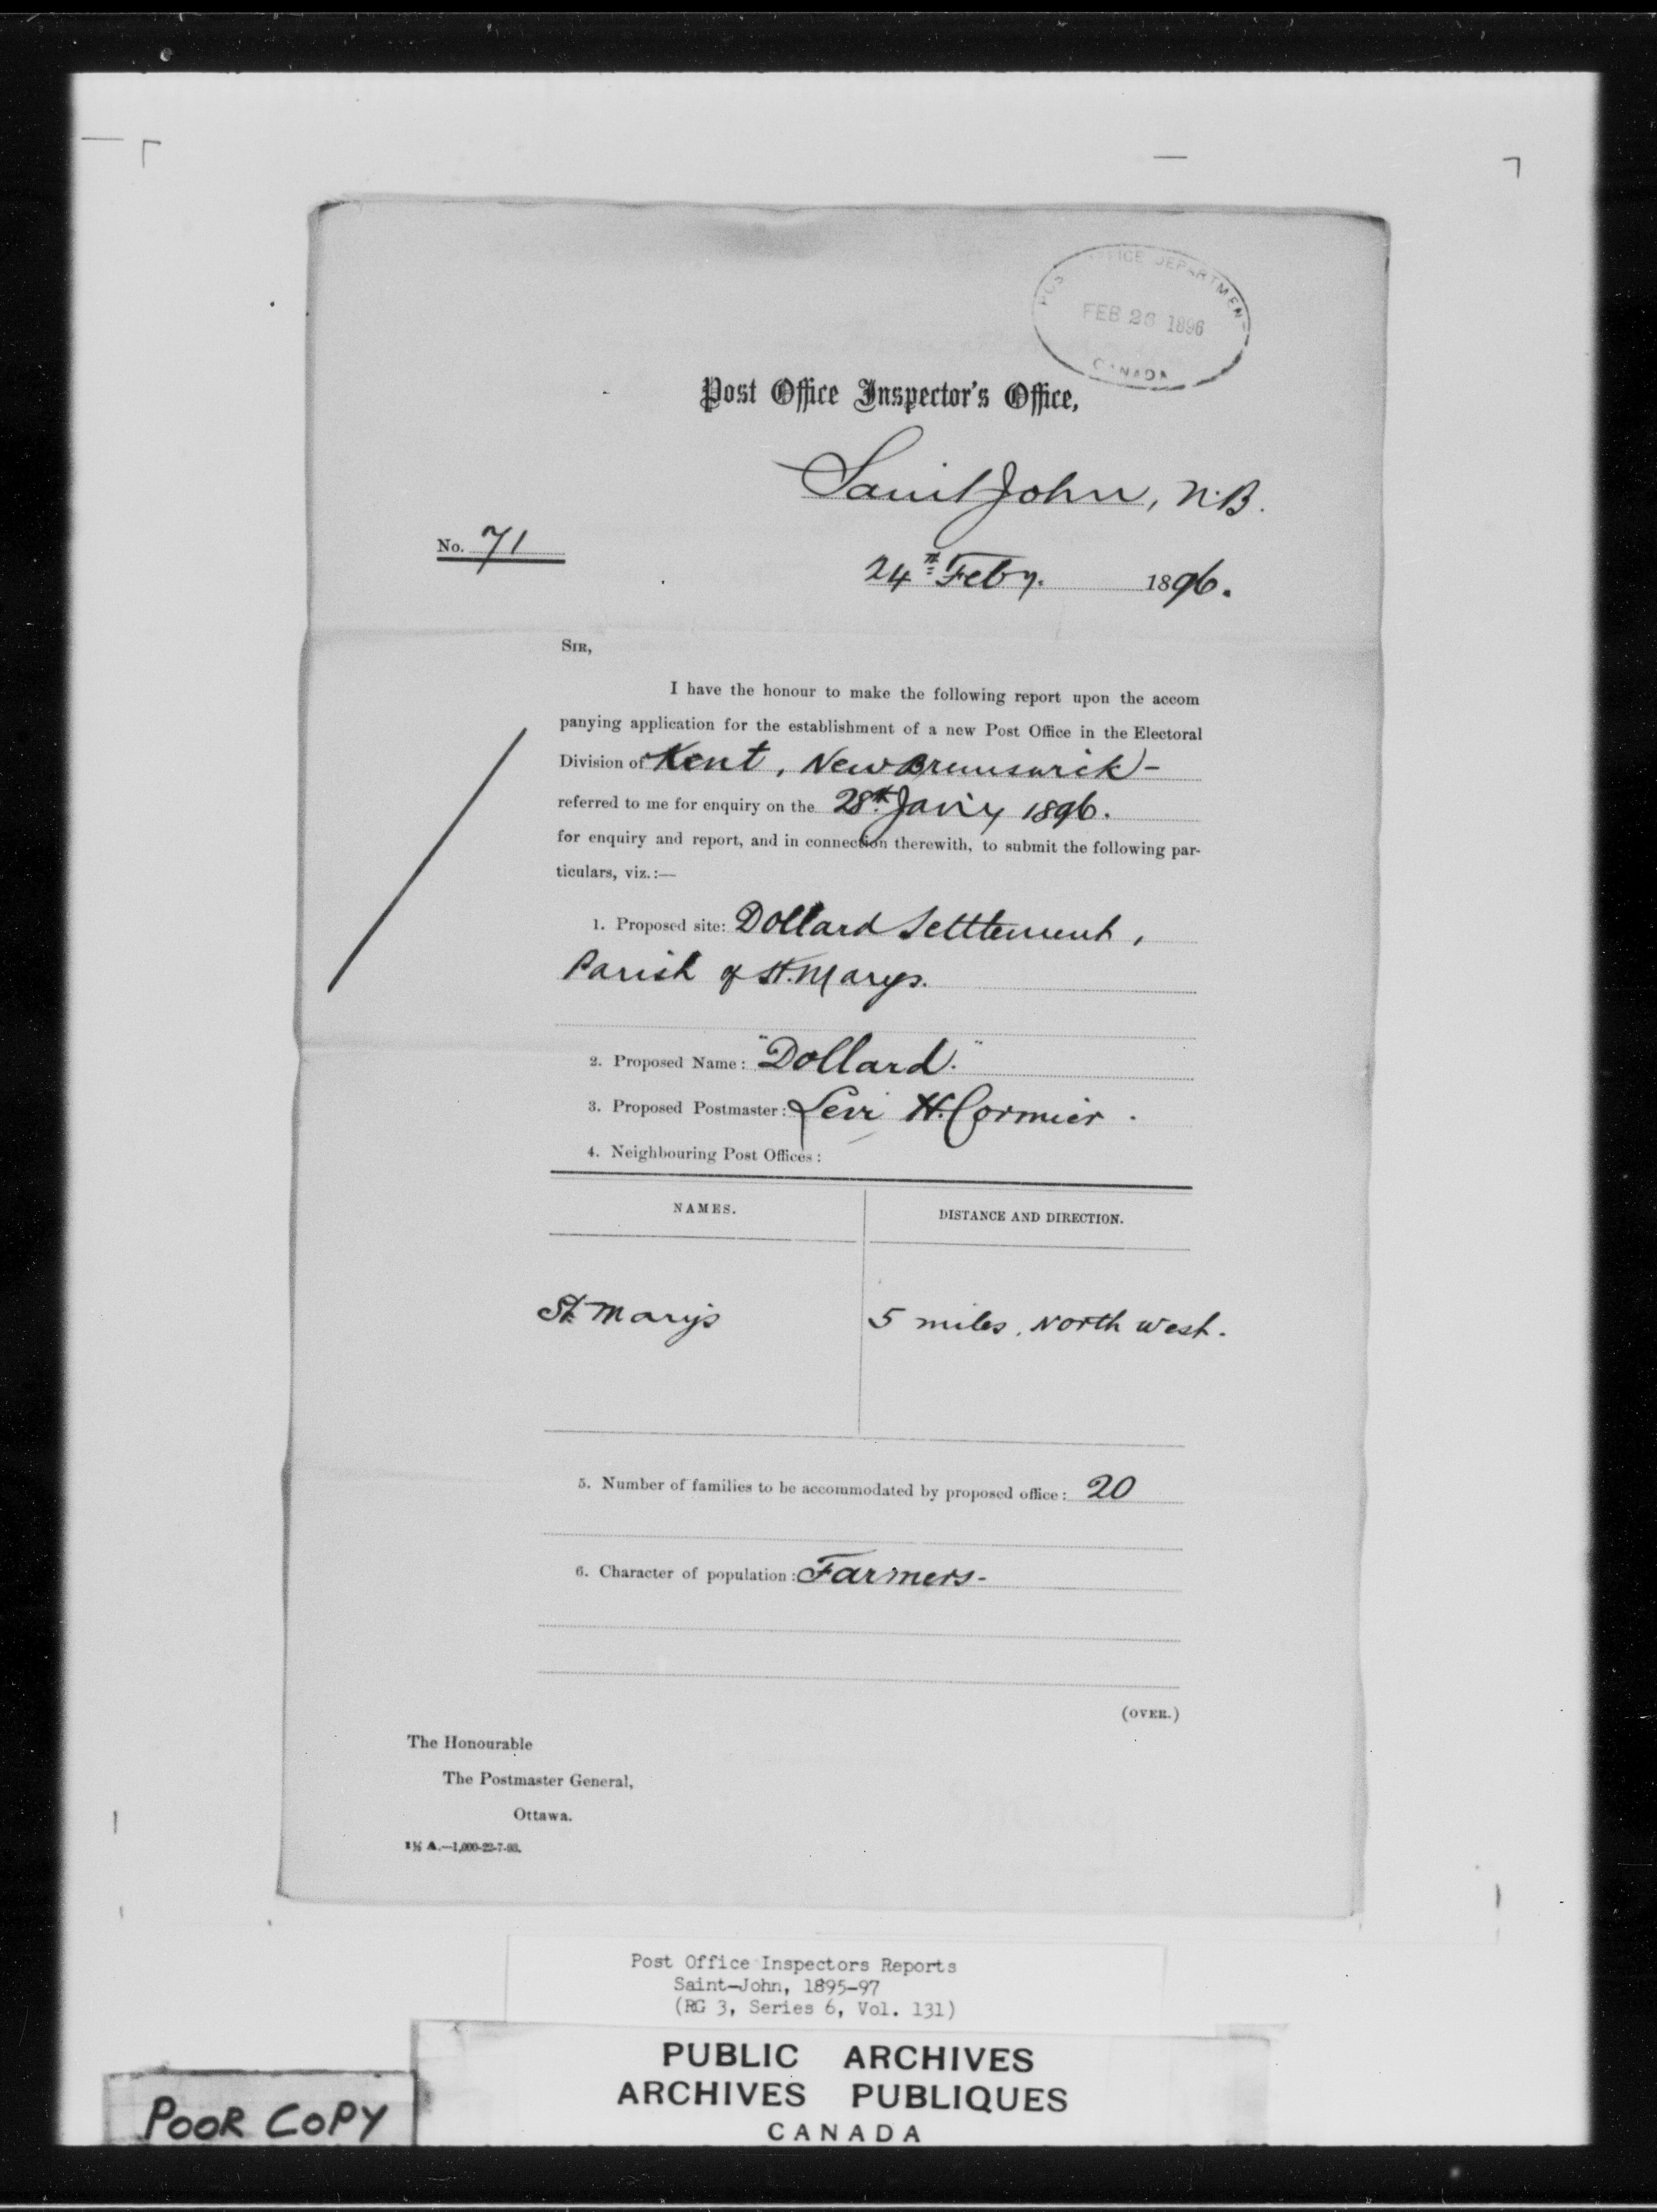 POST OFFICE DEPARTMENT
FEB 26 1896
CANADA
Post Office Inspector's Office,
Saint John, N.B.
No. 71
24th Feby. 1896.
SIR,
I have the honour to make the following report upon the accom
panying application for the establishment of a new Post Office in the Electoral
Division of Kent, New Brunswick -
referred to me for enquiry on the 28th Jan'y 1896.
for enquiry and report, and in connection therewith, to submit the following par-
ticulars, viz.:—
1. Proposed site: Dollard Settlement,
Parish of St. Marys.
2. Proposed Name: "Dollard."
3. Proposed Postmaster: Levi H. Cormier.
4. Neighbouring Post Offices:
NAMES. DISTANCE AND DIRECTION.
St. Mary's 5 miles, North West.
5. Number of families to be accommodated by proposed office: 20
6. Character of population: Farmers-
(OVER.)
The Honourable
The Postmaster General,
Ottawa.
A.—1,000-22-7-93.
Post Office Inspectors Reports
Saint-John, 1895-97
(RG 3, Series 6, Vol. 131)
PUBLIC ARCHIVES
ARCHIVES PUBLIQUES
CANADA
POOR COPY